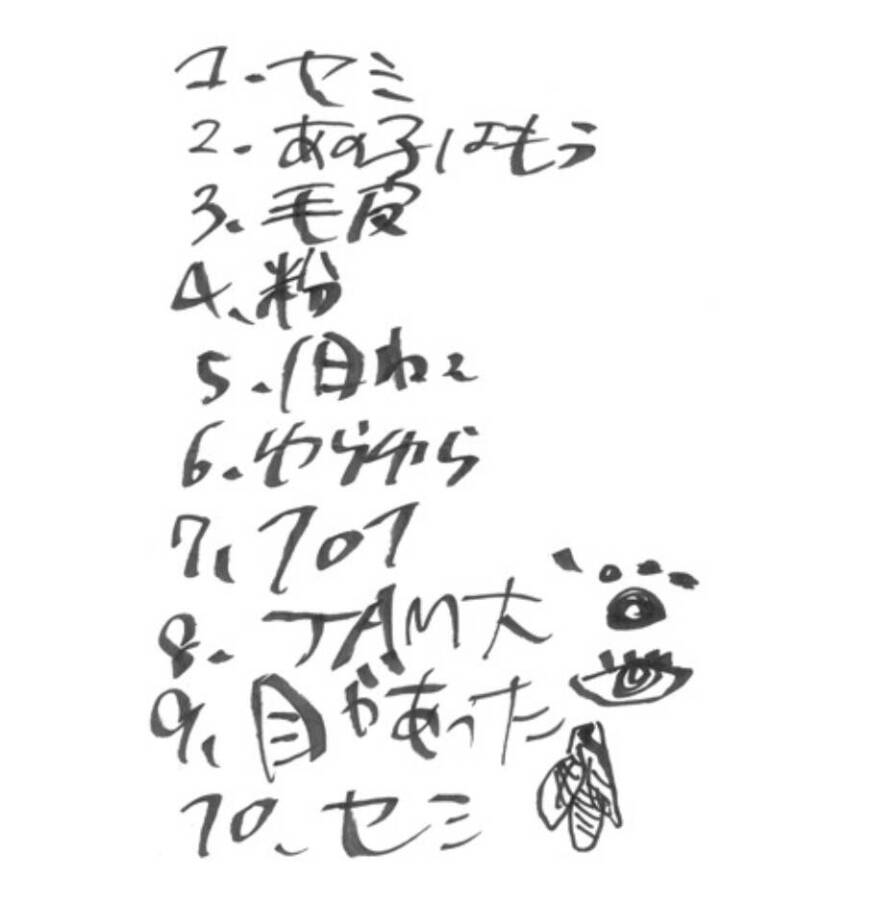 1. セミ
2. あの子はもう
3. 毛皮
4. 粉
5. 日ねこ
6. ゆらゆら
7.
8. JAM大
9. 目があった
10. セミ